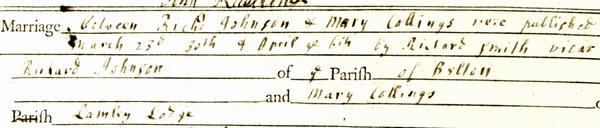 Marriage between Richd Johnson & Mary Collings were published
March 23d 30th & April ye 6th by Richard Smith vicar
Richard Johnson of ye Parish of Belton
and Mary Collings
Parish Lamley Lodge